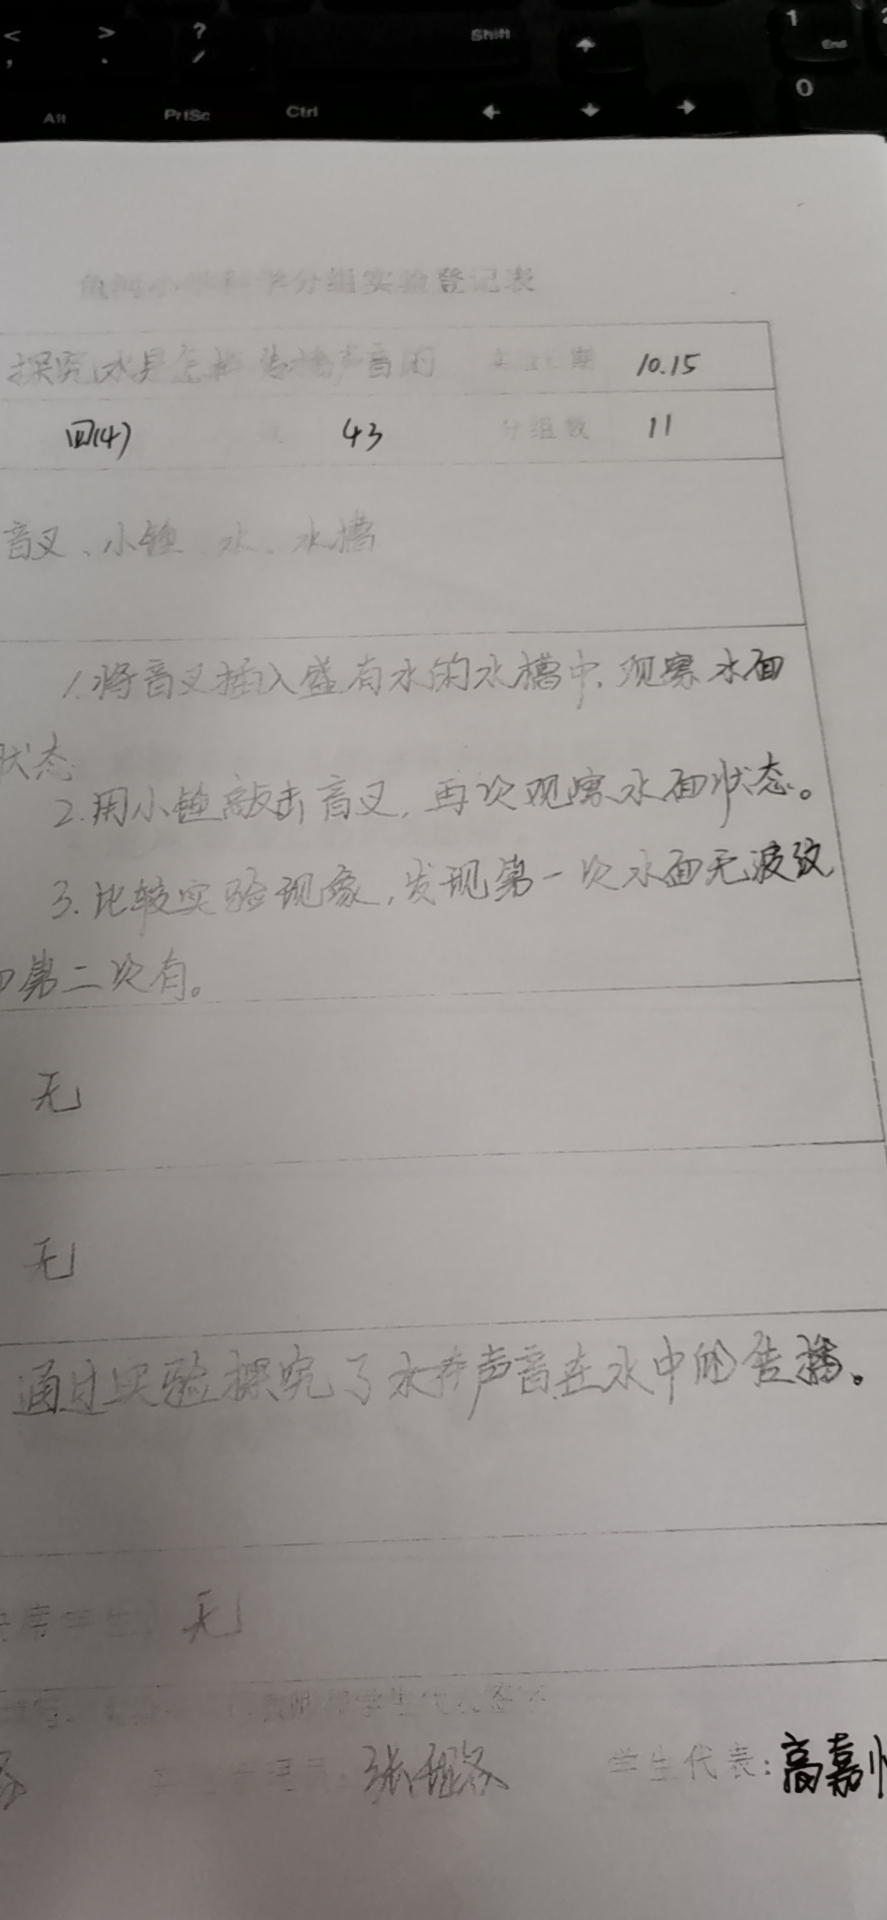 < > ? Shift 1
, . / End
0
Alt PrtSc Ctrl
小学科学分组实验登记表
探究水是怎样传播声音的 实验日期 10.15
四(4) 43 分组数 11
音叉、小锤 水、水槽
1.将音叉插入盛有水的水槽中,观察水面
状态.
2.用小锤敲击音叉,再次观察水面状态。
3.比较实验现象,发现第一次水面无波纹
第二次有。
无
无
通过实验探究了水在声音在水中的传播。
席学生 无
学生代表:高嘉